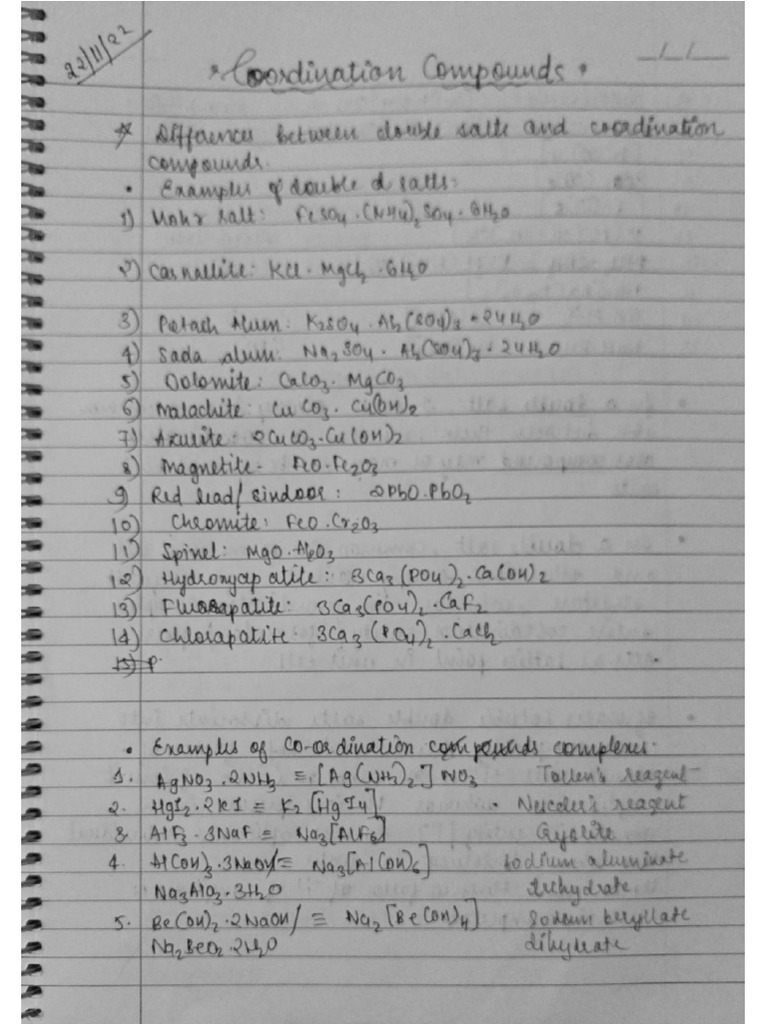 22/11/22
__/__/__
• Coordination Compounds •
* Differences between double salts and coordination
compounds.
• Examples of double d salts:
1) Mohr salt: FeSO4 · (NH4)2 SO4 · 6H2O
2) Carnallite: KCl · MgCl2 · 6H2O
3) Potash Alum: K2SO4 · Al2(SO4)3 · 24H2O
4) Soda alum: Na2SO4 · Al2(SO4)3 · 24H2O
5) Dolomite: CaCO3 · MgCO3
6) Malachite: CuCO3 · Cu(OH)2
7) Azurite: 2CuCO3 · Cu(OH)2
8) Magnetite - FeO · Fe2O3
9) Red lead / sindoor: 2PbO · PbO2
10) Chromite: FeO · Cr2O3
11) Spinel: MgO · Al2O3
12) Hydroxyapatite: 3Ca3(PO4)2 · Ca(OH)2
13) Fluorapatite: 3Ca3(PO4)2 · CaF2
14) Chlorapatite: 3Ca3(PO4)2 · CaCl2
15) P
• Examples of co-ordination compounds complexes:
1. AgNO3 · 2NH3 ≡ [Ag(NH3)2] NO3 Tollen's reagent
2. HgI2 · 2KI ≡ K2[HgI4] • Nessler's reagent
3. AlF3 · 3NaF ≡ Na3[AlF6] Cryolite
4. Al(OH)3 · 3NaOH/ ≡ Na3[Al(OH)6] sodium aluminate
Na3AlO3 · 3H2O trihydrate
5. Be(OH)2 · 2NaOH/ ≡ Na2[Be(OH)4] Sodium beryllate
Na2BeO2 · 2H2O dihydrate